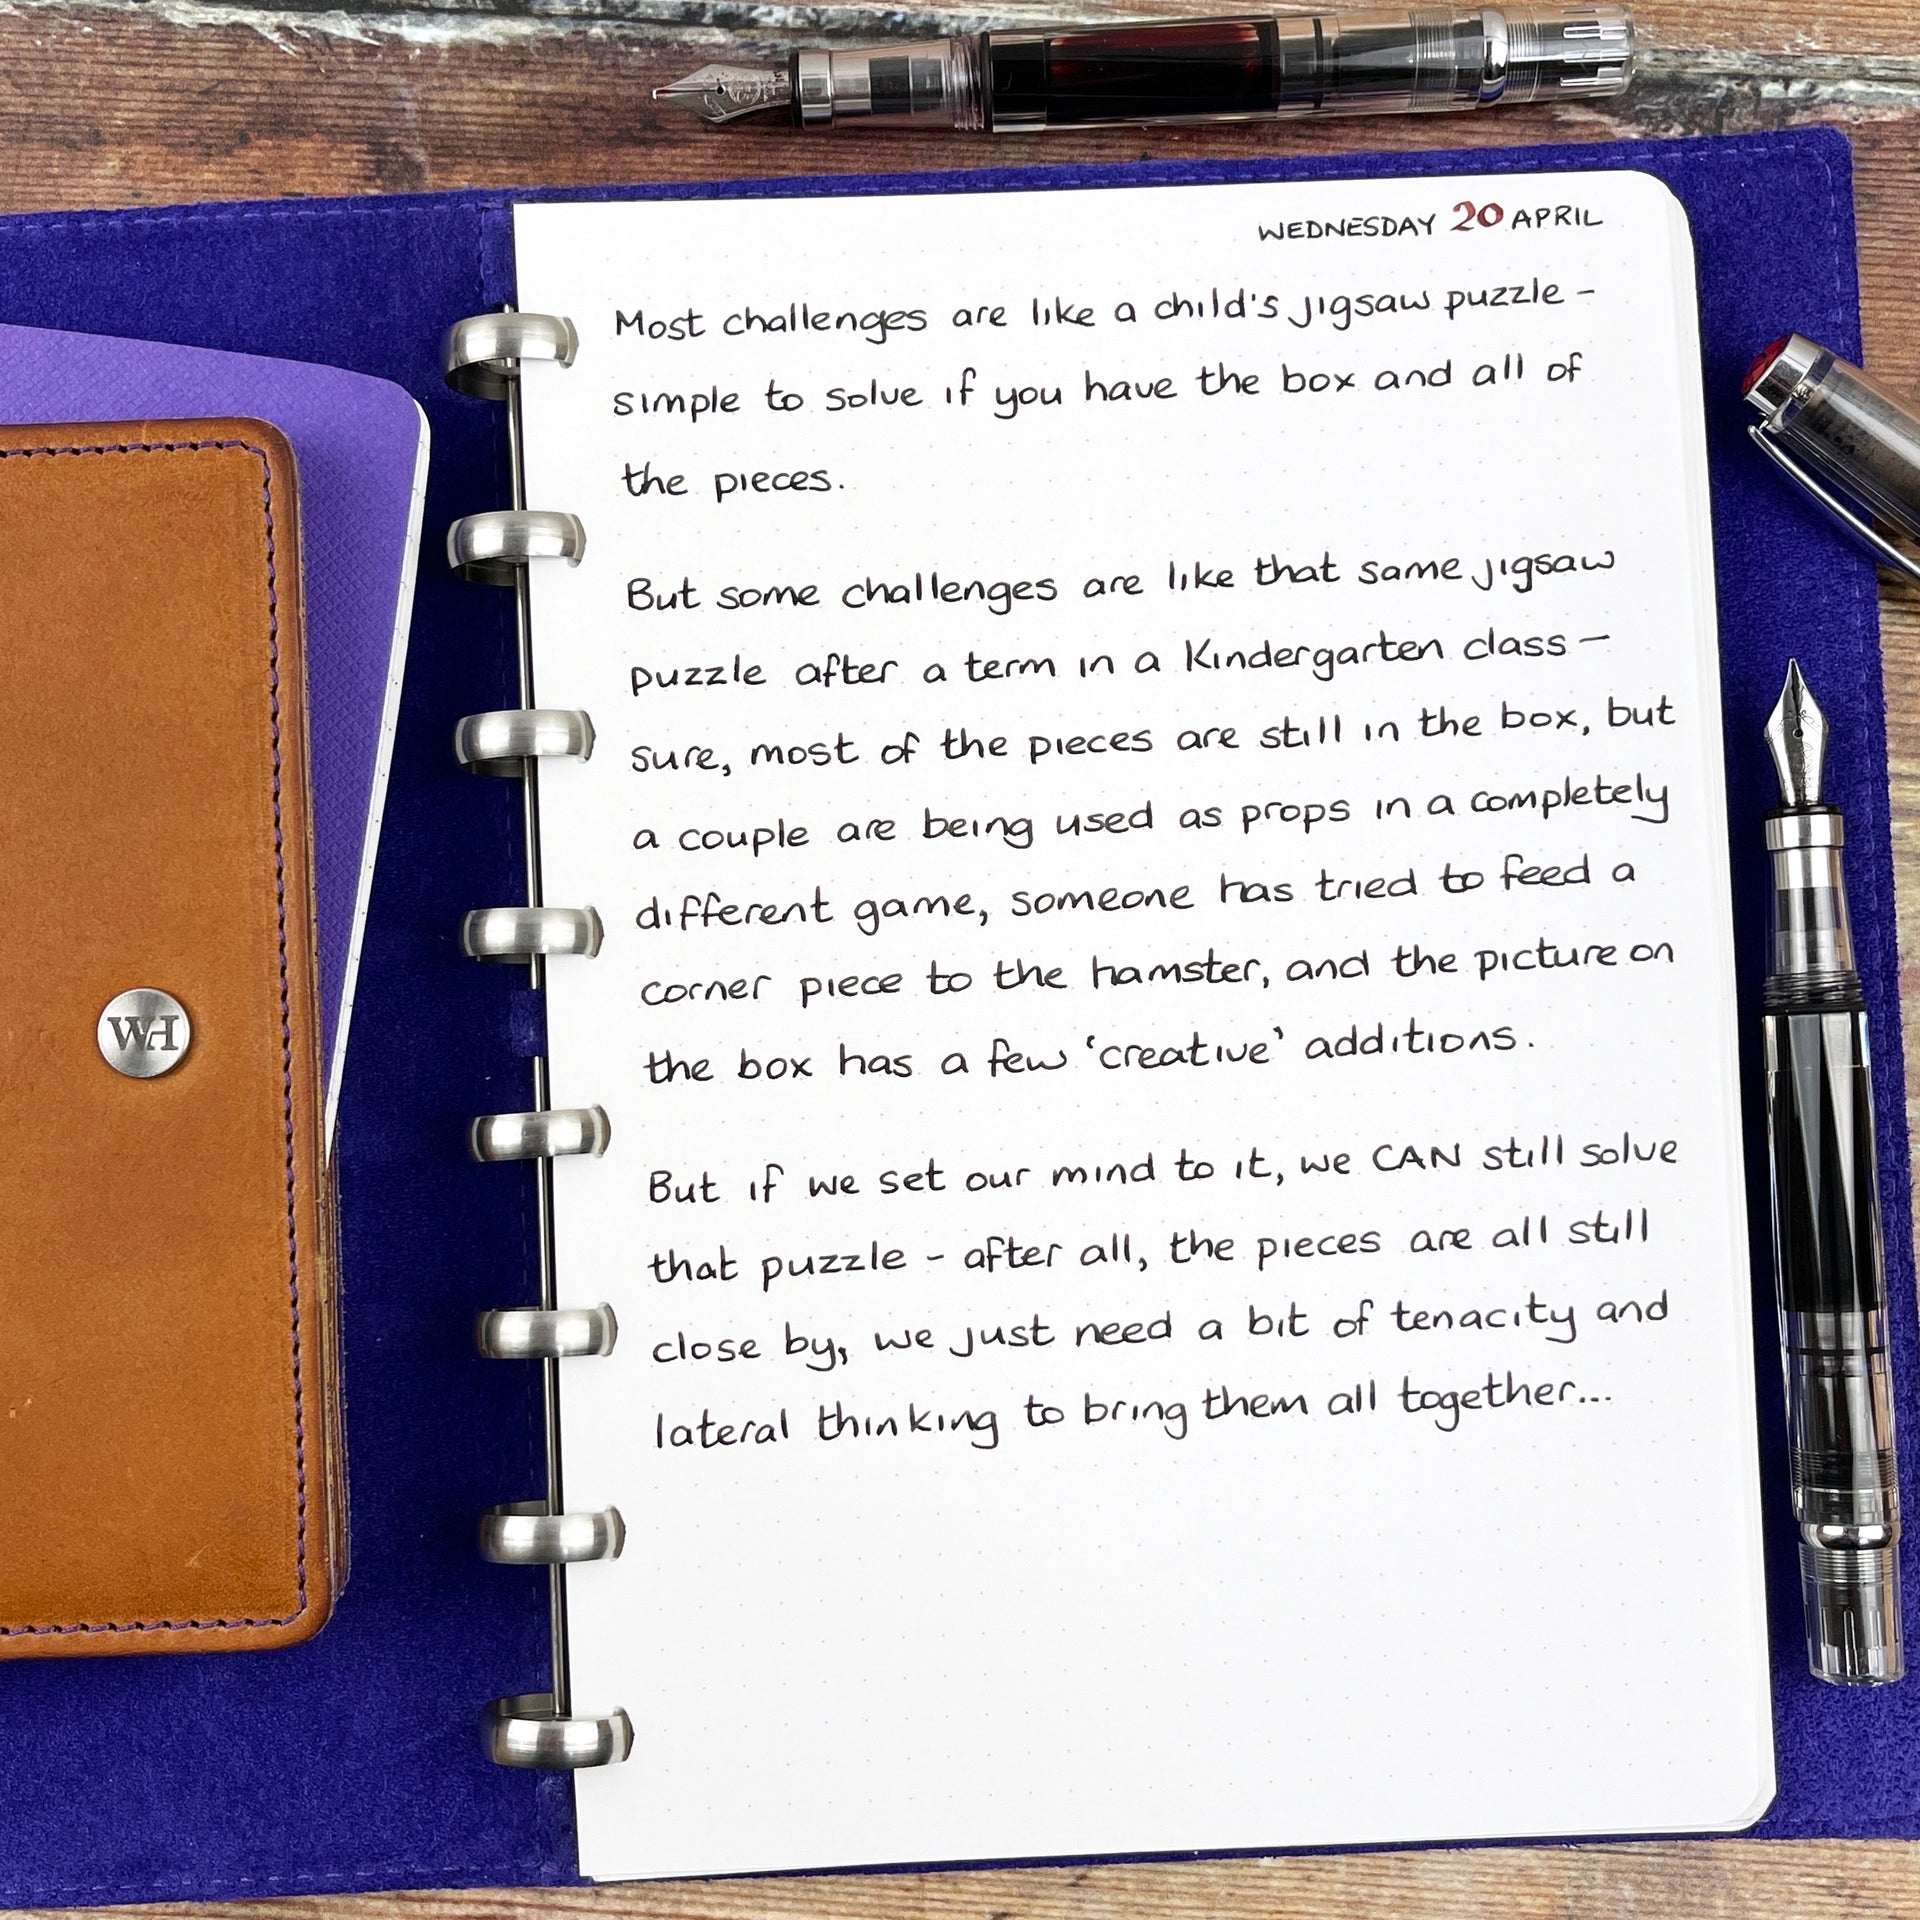 WEDNESDAY 20 APRIL
Most challenges are like a child's jigsaw puzzle -
simple to solve if you have the box and all of
the pieces.
But some challenges are like that same jigsaw
puzzle after a term in a Kindergarten class -
sure, most of the pieces are still in the box, but
a couple are being used as props in a completely
different game, someone has tried to feed a
corner piece to the hamster, and the picture on
the box has a few 'creative' additions.
But if we set our mind to it, we CAN still solve
that puzzle - after all, the pieces are all still
close by, we just need a bit of tenacity and
lateral thinking to bring them all together...
WH